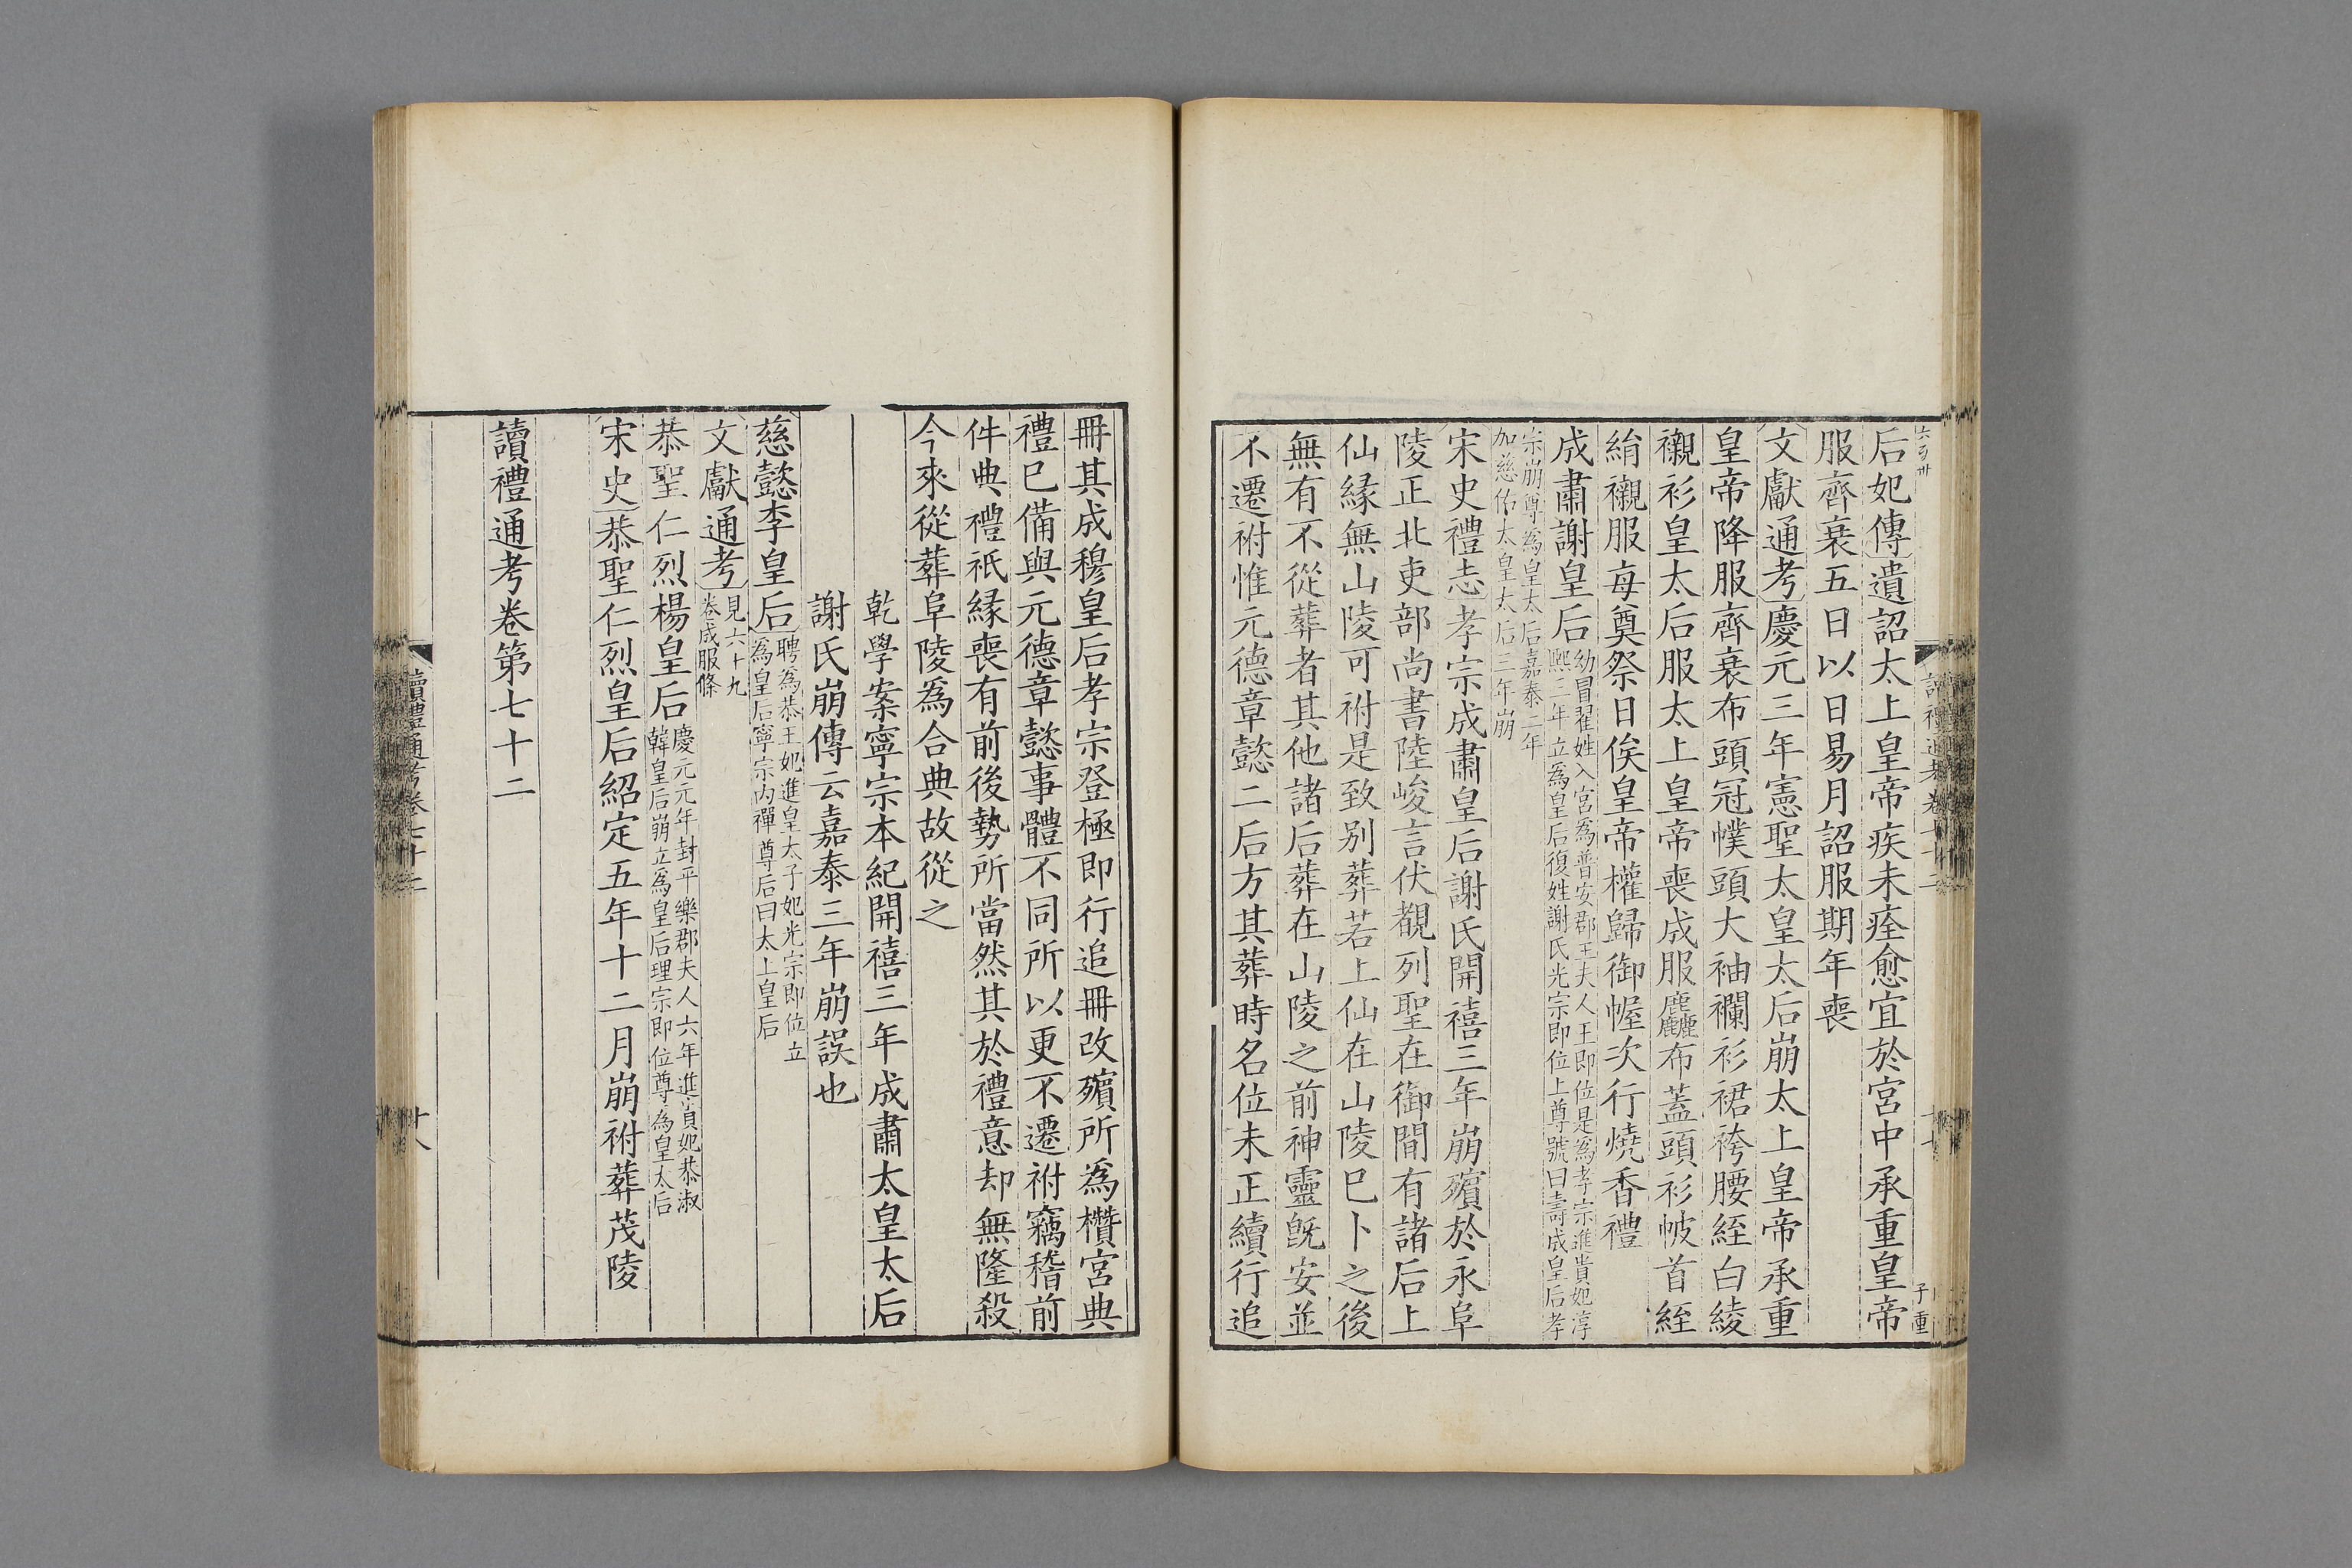 后妃傳遺詔太上皇帝疾未痊愈宜於宮中承重皇帝
服齊衰五日以日易月詔服期年喪
文獻通考慶元三年憲聖太皇太后崩太上皇帝承重
皇帝降服齊衰布頭冠幞頭大袖襴衫裙袴腰絰白綾
襯衫皇太后服太上皇帝喪成服麤布蓋頭衫帔首絰
絹襯服每奠祭日俟皇帝權歸御幄次行燒香禮
成肅謝皇后幼冒翟姓入宮爲普安郡王夫人王即位是爲孝宗進貴妃淳
熙三年立爲皇后復姓謝氏光宗即位上尊號曰壽成皇后孝
宗崩尊爲皇太后嘉泰二年
加慈佑太皇太后三年崩
宋史禮志孝宗成肅皇后謝氏開禧三年崩殯於永阜
陵正北吏部尚書陸峻言伏覩列聖在御間有諸后上
仙緣無山陵可祔是致别葬若上仙在山陵巳卜之後
無有不從葬者其他諸后葬在山陵之前神靈旣安並
不遷祔惟元德章懿二后方其葬時名位未正續行追
冊其成穆皇后孝宗登極即行追冊改殯所爲欑宮典
禮巳備與元德章懿事體不同所以更不遷祔竊稽前
件典禮祇緣喪有前後勢所當然其於禮意却無隆殺
今來從葬阜陵爲合典故從之
乾學案寧宗本紀開禧三年成肅太皇太后
謝氏崩傳云嘉泰三年崩誤也
慈懿李皇后聘爲恭王妃進皇太子妃光宗即位立
爲皇后寧宗内禪尊后曰太上皇后
文獻通考見六十九
卷成服條
恭聖仁烈楊皇后慶元元年封平樂郡夫人六年進貴妃恭淑
韓皇后崩立爲皇后理宗即位尊爲皇太后
宋史恭聖仁烈皇后紹定五年十二月崩祔葬茂陵
讀禮通考卷第七十二
讀禮通考卷七十二
廿八